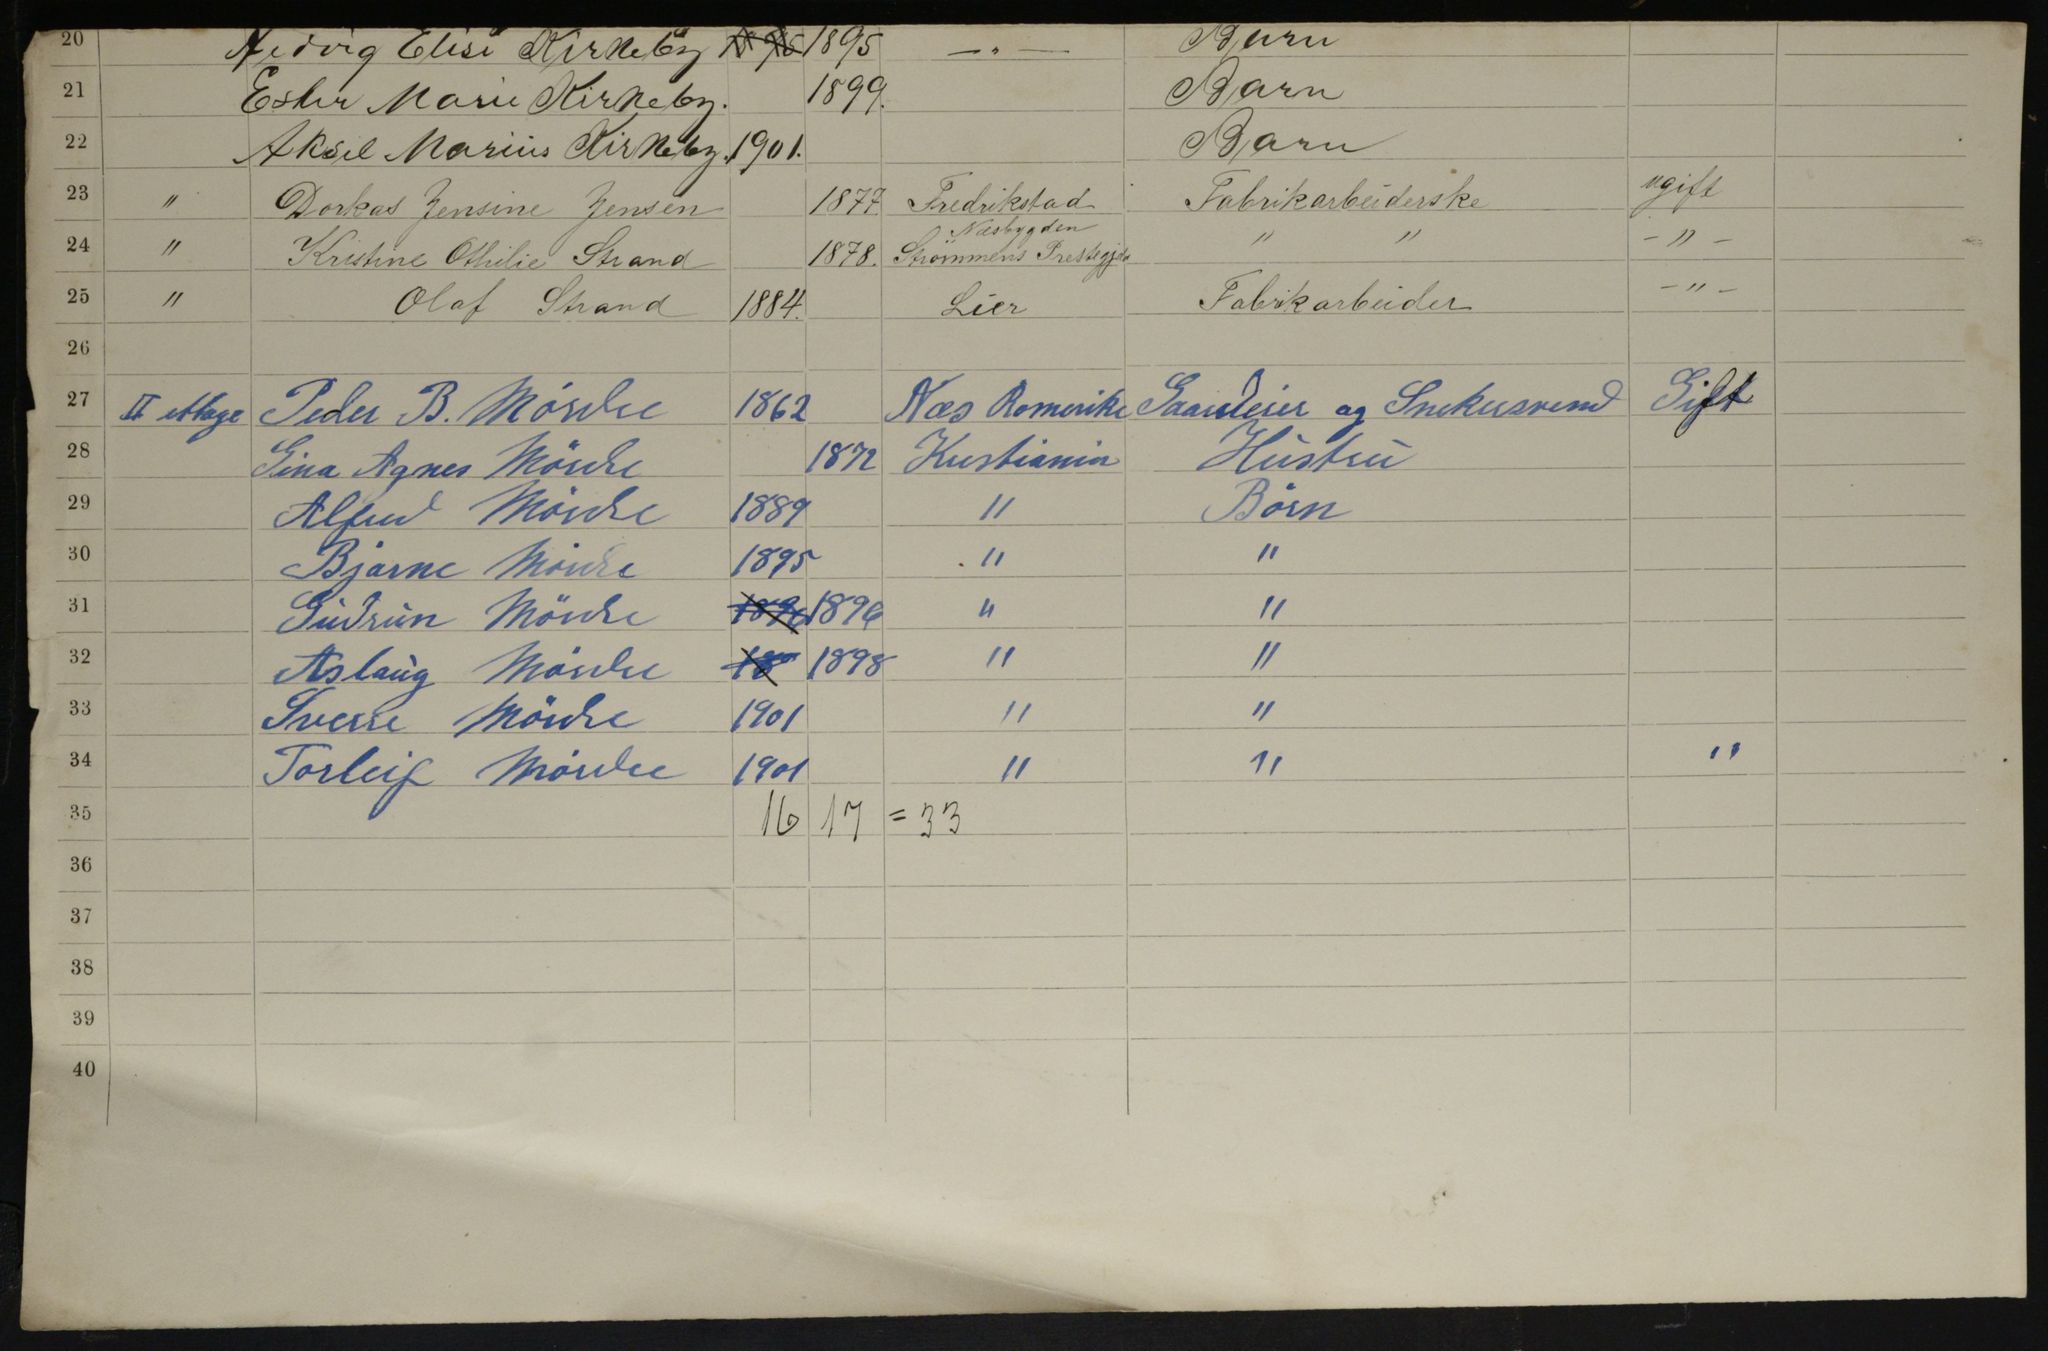 20 Hedvig Elise Kirkeby 1895 1895 —„— Barn
21 Ester Marie Kirkeby. 1899. Barn
22 Aksel Marius Kirkeby. 1901. Barn
23 " Dorkas Jensine Jensen 1877. Fredrikstad Fabrikarbeiderske ugift
Næsbygden
24 " Kristine Othilie Strand 1878. Strömmens Prestegjd " " - " -
25 " Olaf Strand 1884. Lier Fabrikarbeider - " -
26
27 II etage Peder B. Mördre 1862 Næs Romerike Gaardeier og Snekersvend Gift
28 Gina Agnes Mördre 1872 Kristiania Hustru
29 Alfred Mördre 1889 " Börn
30 Bjarne Mördre 1895 " "
31 Gudrun Mördre 1896 1896 " "
32 Aslaug Mördre 18 1898 " "
33 Sverre Mördre 1901 " "
34 Torleif Mördre 1901 " " "
35 16 17 = 33
36
37
38
39
40